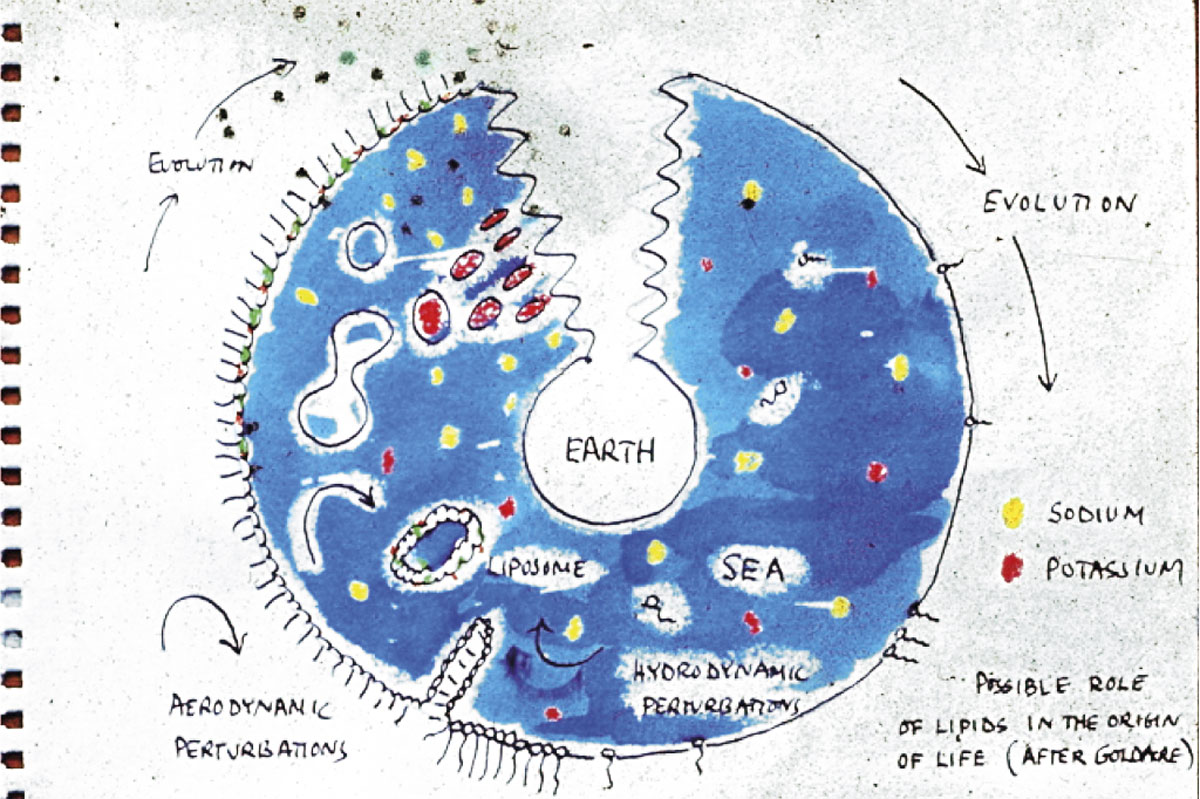 EVOLUTION
EVOLUTION
EARTH
SODIUM
POTASSIUM
LIPOSOME
SEA
HYDRODYNAMIC
PERTURBATIONS
AERODYNAMIC
PERTURBATIONS
POSSIBLE ROLE
OF LIPIDS IN THE ORIGIN
OF LIFE (AFTER GOLDACRE)